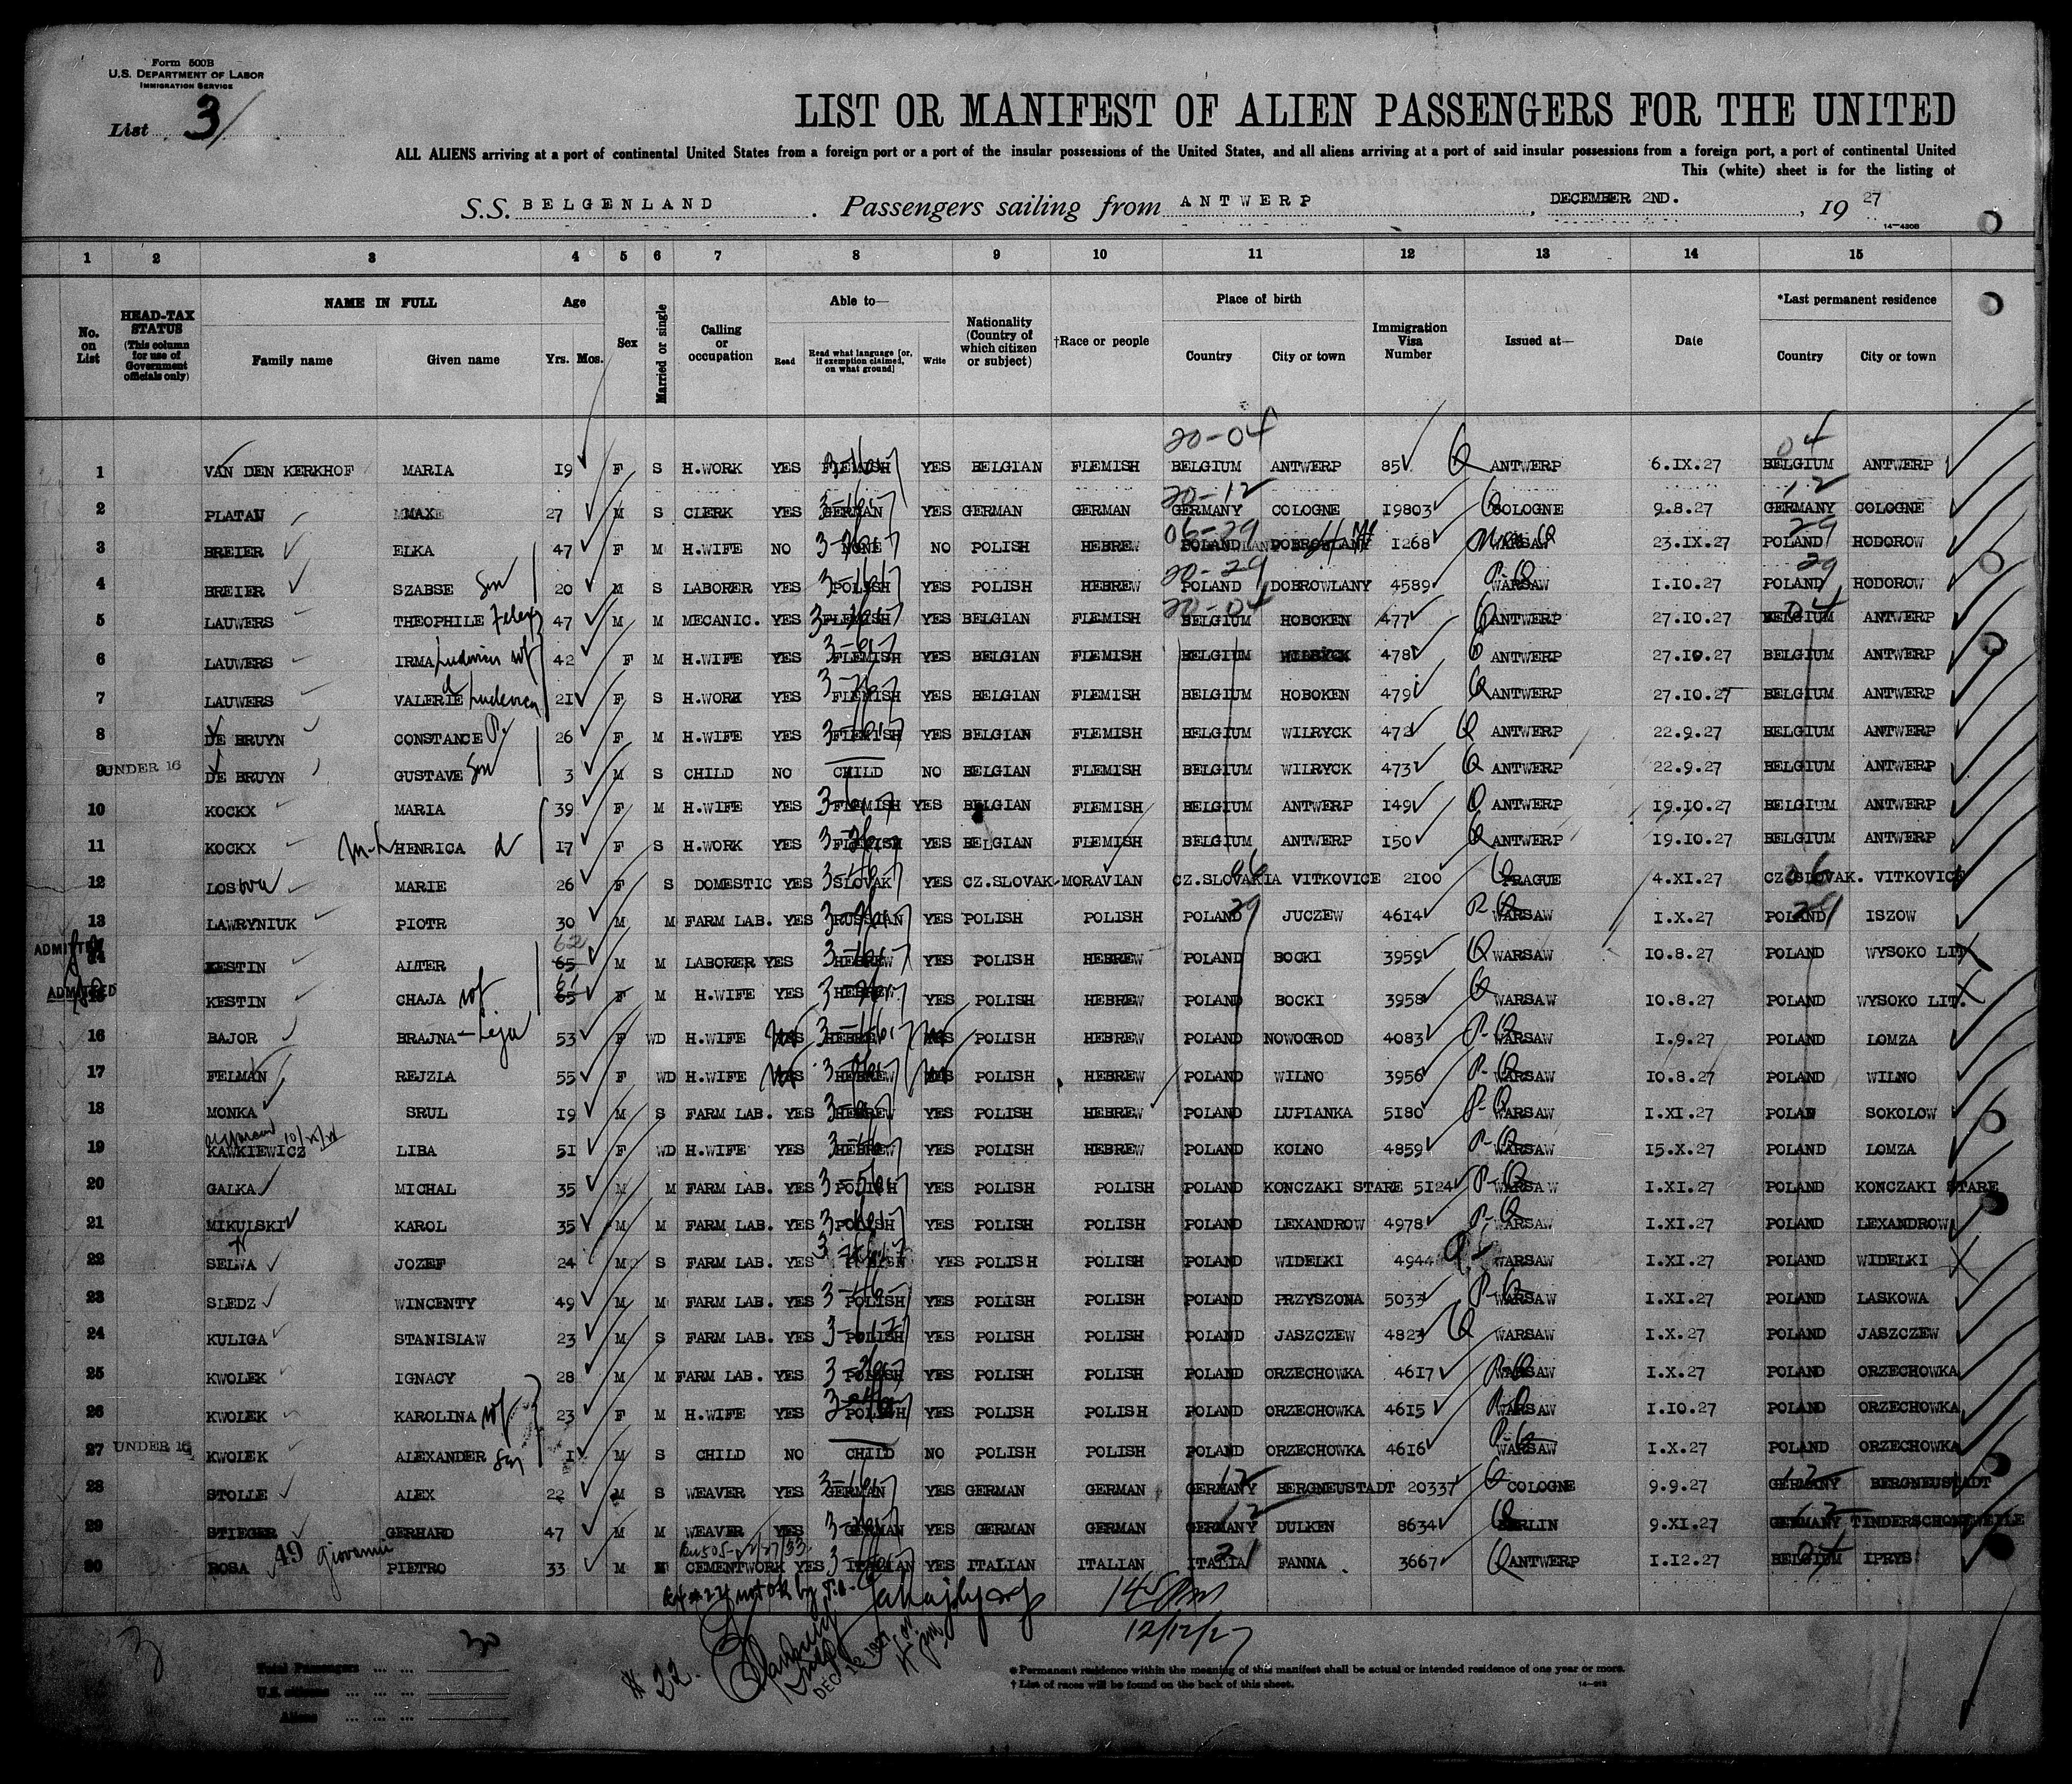 Form 500B
U.S. DEPARTMENT OF LABOR
IMMIGRATION SERVICE
List 3
LIST OR MANIFEST OF ALIEN PASSENGERS FOR THE UNITED
ALL ALIENS arriving at a port of continental United States from a foreign port or a port of the insular possessions of the United States, and all aliens arriving at a port of said insular possessions from a foreign port, a port of continental United
This (white) sheet is for the listing of
S.S. BELGENLAND. Passengers sailing from ANTWERP, DECEMBER 2ND., 1927
14-4308
1 2 3 4 5 6 7 8 9 10 11 12 13 14 15
No. on List HEAD-TAX STATUS (This column for use of Government officials only) NAME IN FULL Family name Given name Age Yrs. Mos. Sex Married or single Calling or occupation Able to— Read Read what language [or, if exemption claimed, on what ground] Write Nationality (Country of which citizen or subject) †Race or people Place of birth Country City or town Immigration Visa Number Issued at— Date *Last permanent residence Country City or town
20-04 04
1 VAN DEN KERKHOF MARIA 19 F S H.WORK YES FLEMISH YES BELGIAN FLEMISH BELGIUM ANTWERP 85 ANTWERP 6.IX.27 BELGIUM ANTWERP
20-12 12
2 PLATAU MAX 27 M S CLERK YES GERMAN YES GERMAN GERMAN GERMANY COLOGNE 19803 COLOGNE 9.8.27 GERMANY COLOGNE
06-29 29
3 BREIER ELKA 47 F M H.WIFE NO NONE NO POLISH HEBREW POLAND DOBROWLANY 1268 WARSAW 23.IX.27 POLAND HODOROW
20-29 29
4 BREIER SZABSE Son 20 M S LABORER YES POLISH YES POLISH HEBREW POLAND DOBROWLANY 4589 WARSAW 1.10.27 POLAND HODOROW
20-04 04
5 LAUWERS THEOPHILE 47 M M MECANIC. YES FLEMISH YES BELGIAN FLEMISH BELGIUM HOBOKEN 477 ANTWERP 27.10.27 BELGIUM ANTWERP
6 LAUWERS IRMA wf 42 F M H.WIFE YES FLEMISH YES BELGIAN FLEMISH BELGIUM WILRYCK 478 ANTWERP 27.10.27 BELGIUM ANTWERP
7 LAUWERS VALERIE 21 F S H.WORK YES FLEMISH YES BELGIAN FLEMISH BELGIUM HOBOKEN 479 ANTWERP 27.10.27 BELGIUM ANTWERP
8 DE BRUYN CONSTANCE P. 26 F M H.WIFE YES FLEMISH YES BELGIAN FLEMISH BELGIUM WILRYCK 472 ANTWERP 22.9.27 BELGIUM ANTWERP
9 UNDER 16 DE BRUYN GUSTAVE Son 3 M S CHILD NO CHILD NO BELGIAN FLEMISH BELGIUM WILRYCK 473 ANTWERP 22.9.27 BELGIUM ANTWERP
10 KOCKX MARIA 39 F M H.WIFE YES FLEMISH YES BELGIAN FLEMISH BELGIUM ANTWERP 149 ANTWERP 19.10.27 BELGIUM ANTWERP
11 KOCKX HENRICA d 17 F S H.WORK YES FLEMISH YES BELGIAN FLEMISH BELGIUM ANTWERP 150 ANTWERP 19.10.27 BELGIUM ANTWERP
12 LOSOVA MARIE 26 F S DOMESTIC YES SLOVAK YES CZ.SLOVAK-MORAVIAN CZ.SLOVAKIA VITKOVICE 2100 PRAGUE 4.XI.27 CZ.SLOVAK. VITKOVICE
13 LAWRYNIUK PIOTR 30 M M FARM LAB. YES RUSSIAN YES POLISH POLISH POLAND JUCZEW 4614 WARSAW 1.X.27 POLAND ISZOW
ADMITTED 14 KESTIN ALTER 62 65 M M LABORER YES HEBREW YES POLISH HEBREW POLAND BOCKI 3959 WARSAW 10.8.27 POLAND WYSOKO LIT
ADMITTED 15 KESTIN CHAJA wf 61 65 F M H.WIFE YES HEBREW YES POLISH HEBREW POLAND BOCKI 3958 WARSAW 10.8.27 POLAND WYSOKO LIT.
16 BAJOR BRAJNA-Leja 53 F WD H.WIFE YES HEBREW YES POLISH HEBREW POLAND NOWOGROD 4083 WARSAW 1.9.27 POLAND LOMZA
17 FELMAN REJZLA 55 F WD H.WIFE YES HEBREW YES POLISH HEBREW POLAND WILNO 3956 WARSAW 10.8.27 POLAND WILNO
18 MONKA SRUL 19 M S FARM LAB. YES HEBREW YES POLISH HEBREW POLAND LUPIANKA 5180 WARSAW 1.XI.27 POLAN SOKOLOW
19 KAWKIEWICZ LIBA 51 F WD H.WIFE YES HEBREW YES POLISH HEBREW POLAND KOLNO 4859 WARSAW 15.X.27 POLAND LOMZA
20 GALKA MICHAL 35 M M FARM LAB. YES POLISH YES POLISH POLISH POLAND KONCZAKI STARE 5124 WARSAW 1.XI.27 POLAND KONCZAKI STARE
21 MIKULSKI KAROL 35 M M FARM LAB. YES POLISH YES POLISH POLISH POLAND LEXANDROW 4978 WARSAW 1.XI.27 POLAND LEXANDROW
22 SELWA JOZEF 24 M S FARM LAB. YES POLISH YES POLISH POLISH POLAND WIDELKI 4944 WARSAW 1.XI.27 POLAND WIDELKI
23 SLEDZ WINCENTY 49 M M FARM LAB. YES POLISH YES POLISH POLISH POLAND PRZYSZONA 5033 WARSAW 1.XI.27 POLAND LASKOWA
24 KULIGA STANISLAW 23 M S FARM LAB. YES POLISH YES POLISH POLISH POLAND JASZCZEW 4823 WARSAW 1.X.27 POLAND JASZCZEW
25 KWOLEK IGNACY 28 M M FARM LAB. YES POLISH YES POLISH POLISH POLAND ORZECHOWKA 4617 WARSAW 1.X.27 POLAND ORZECHOWKA
26 KWOLEK KAROLINA wf 23 F M H.WIFE YES POLISH YES POLISH POLISH POLAND ORZECHOWKA 4615 WARSAW 1.10.27 POLAND ORZECHOWKA
27 UNDER 16 KWOLEK ALEXANDER Son 1 M S CHILD NO CHILD NO POLISH POLISH POLAND ORZECHOWKA 4616 WARSAW 1.X.27 POLAND ORZECHOWKA
28 STOLLE ALEX 22 M S WEAVER YES GERMAN YES GERMAN GERMAN GERMANY BERGNEUSTADT 20337 COLOGNE 9.9.27 GERMANY BERGNEUSTADT
29 STIEGER GERHARD 47 M M WEAVER YES GERMAN YES GERMAN GERMAN GERMANY DULKEN 8634 BERLIN 9.XI.27 GERMANY
30 ROSA 49 Giovanni PIETRO 33 M M CEMENTWORK YES ITALIAN YES ITALIAN ITALIAN ITALIA FANNA 3667 ANTWERP 1.12.27 BELGIUM IPRYS
145 Pm
12/12/27
3 30
Total Passengers
U.S. citizens
Aliens
# 22.
DEC 12 1927
*Permanent residence within the meaning of this manifest shall be actual or intended residence of one year or more.
†List of races will be found on the back of this sheet.